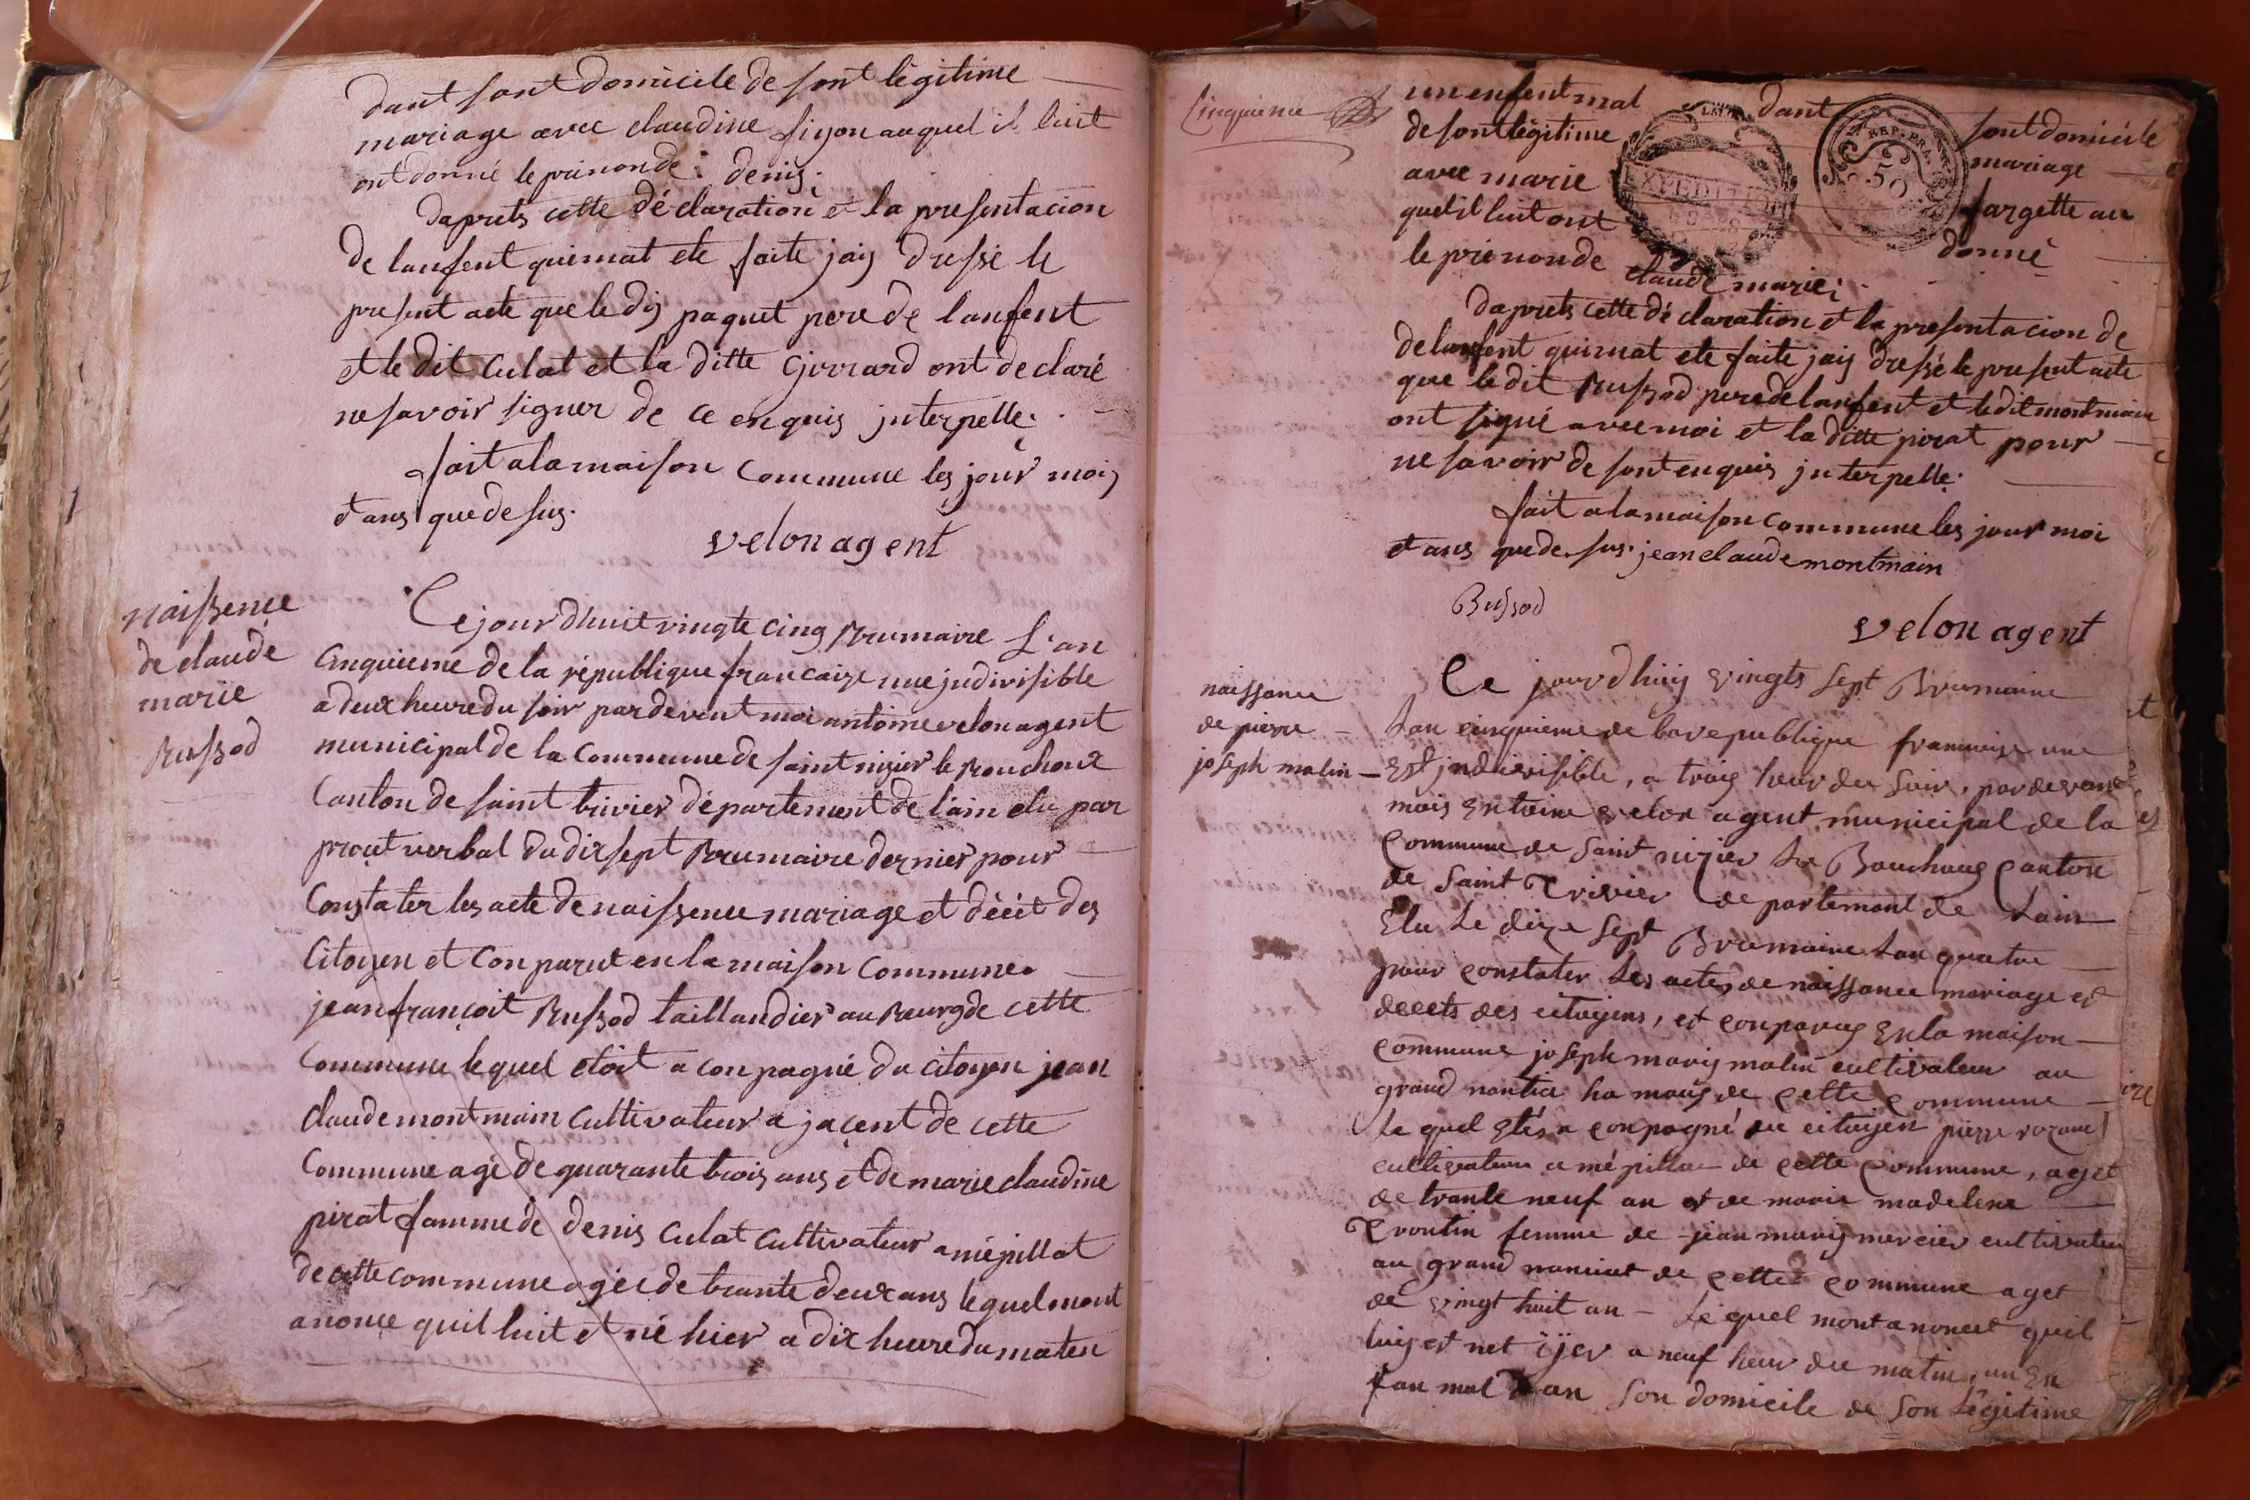 dant sont domicile de sont légitime
mariage avec claudine figon auquel il luit
ont donné le prinonde : denis.
daprets cette déclaration et la presentacion
de lanfent quimat ete faite jaij dressé le
present acte que le dij paquet pere de lanfent
et le dit culat et la ditte girrard ont declaré
ne savoir signer de ce enquis jnterpelle.
fait a la maison commune les jour mois
et ans que desus.
velon agent
naissence
de claude
marie
Bussod
Ce jour dhuit vingte cinq Brumaire L'an
cinquieme de la république francaize une jndivisible
a deux heure du soir pardevent moi antoine velon agent
municipal de la commune de saint nizier le Bouchoux
Canton de saint trivier département de lain elu par
proçut verbal du dix sept Brumaire dernier pour
Constater les acte de naissence mariage et décèt des
Citoyen et Conparut en la maison Commune
jean françoit Bussod taillandier au Bourg de cette
Commune le quel etoit a conpagné du citoyen jean
claude montmain Cultivateur a jacent de cette
Commune agé de quarante trois ans et de marie claudine
pirat famme de denis culat cultivateur a mépillat
de cette commune agée de trante deux ans le quel mont
anonce quil luit et né hier a dix heure du maten
Cinquieme
un enfent mal dant sont domicile
de sont légitime mariage
avec marie fargette au
quel il luit ont donné
le prinonde claude marie;
EXPEDITION
REP. FRA.
50
daprets cette déclaration et la presentacion de
de lanfent quimat ete faite jaij dressé le present acte
que le dit Bussod pere de lanfent et le dit montmain
ont signé avec moi et la ditte pirat pour
ne savoir de sont enquis jnterpelle.
fait a la maison commune les jour moi
et ans que de sus. jean claude montmain
Bussod
velon agent
naissance
de pierre
joseph malin
Ce jourdhuij vingts sept Brumaire
Lan cinquieme de la republique francaise une
Est jndivisible, a trois heur du soir, pardevent
mois Entoine velon agent municipal de la
Commune de saint nizier Le Bouchoux Canton
de Saint Trivier departemant de Lain
Elu Le dize sept Brumaire Lan quatre
pour constater Les actes de naissance mariage et
decets des citoijens, et conparus En la maison
commune joseph marij malin cultivateur au
grand nantia hamaus de Cette Commune
Le quel Etés a conpagné du citoijen pierre
cultivateur a mépillat de Cette Commune, aget
de trante neuf an et de marie madelene
Troutin femme de jean marij mercier cultivateur
au grand nanciat de Cette commune aget
de vingt huit an - Le quel mont anoncet quil
luij et net ijer a neuf heur du matin, un En
fan mal Dan son domicile de son Légitime